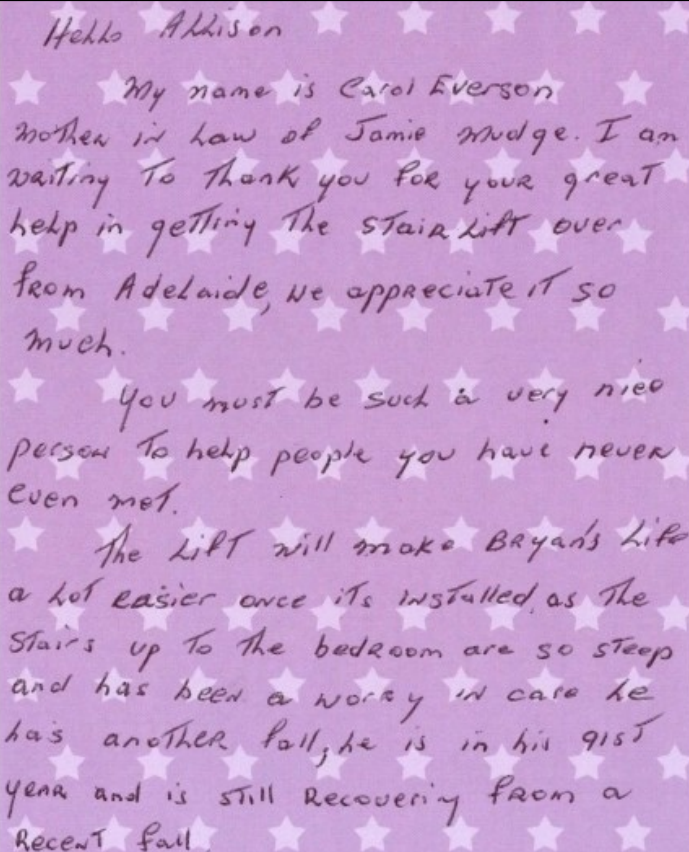 Hello Allison
My name is Carol Everson
mother in Law of Jamie Mudge. I am
waiting To Thank you for your great
help in getting The Stair Lift over
from Adelaide, we appreciate it so
much.
You must be such a very nice
person To help people you have never
even met.
The Lift will make Bryan's Life
a Lot easier once its installed, as The
Stairs up To The bedroom are so steep
and has been a worry in case he
has another fall, he is in his 91st
year and is still Recovering from a
Recent fall.